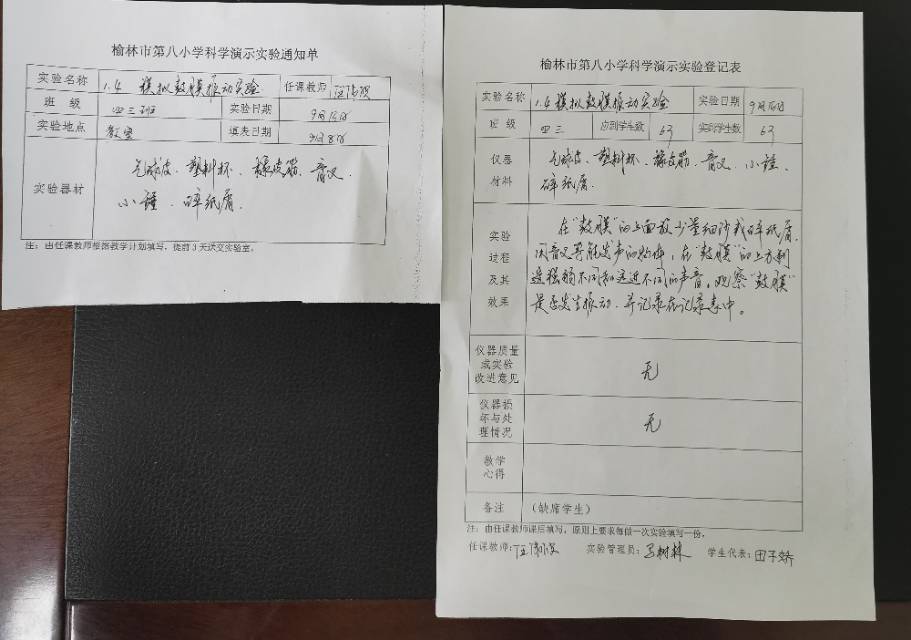 榆林市第八小学科学演示实验通知单
实验名称 1.4 模拟鼓膜振动实验 任课教师
班 级 四三班 实验日期
实验地点 教室 填表日期 9月8日
实验器材 气球皮、塑料杯、橡皮筋、音叉、
小锤、碎纸屑.
注：由任课教师根据教学计划填写，提前3天送交实验室。
榆林市第八小学科学演示实验登记表
实验名称 1.4模拟鼓膜振动实验 实验日期
班 级 四三 应到学生数 63 实到学生数 63
仪器 气球皮、塑料杯、橡皮筋、音叉、小锤、
材料 碎纸屑.
在“鼓膜”的上面放少量细沙或碎纸屑.
实验 用音叉等能发声的物体，在“鼓膜”的上方制
过程 造强弱不同和远近不同的声音。观察“鼓膜”
及其 是否发生振动，并记录在记录表中。
效果
仪器质量
或实验
改进意见 无
仪器损
坏与处
理情况 无
教学
心得
备注 (缺席学生)
注：由任课教师课后填写，原则上要求每做一次实验填写一份。
任课教师： 实验管理员： 树林 学生代表：田子娇